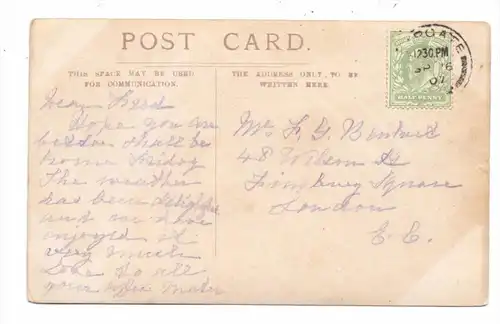 POST CARD.
THIS SPACE MAY BE USED
FOR COMMUNICATION.
THE ADDRESS ONLY TO BE
WRITTEN HERE.
HALF PENNY
12.30PM
07
Dear Fred
Hope you are
better shall be
home Friday
The weather
has been delightful
and we have
enjoyed it
very much
Love to all
your Mater
Mr F G
48 Wilson St
Finsbury Square
London
E.C.